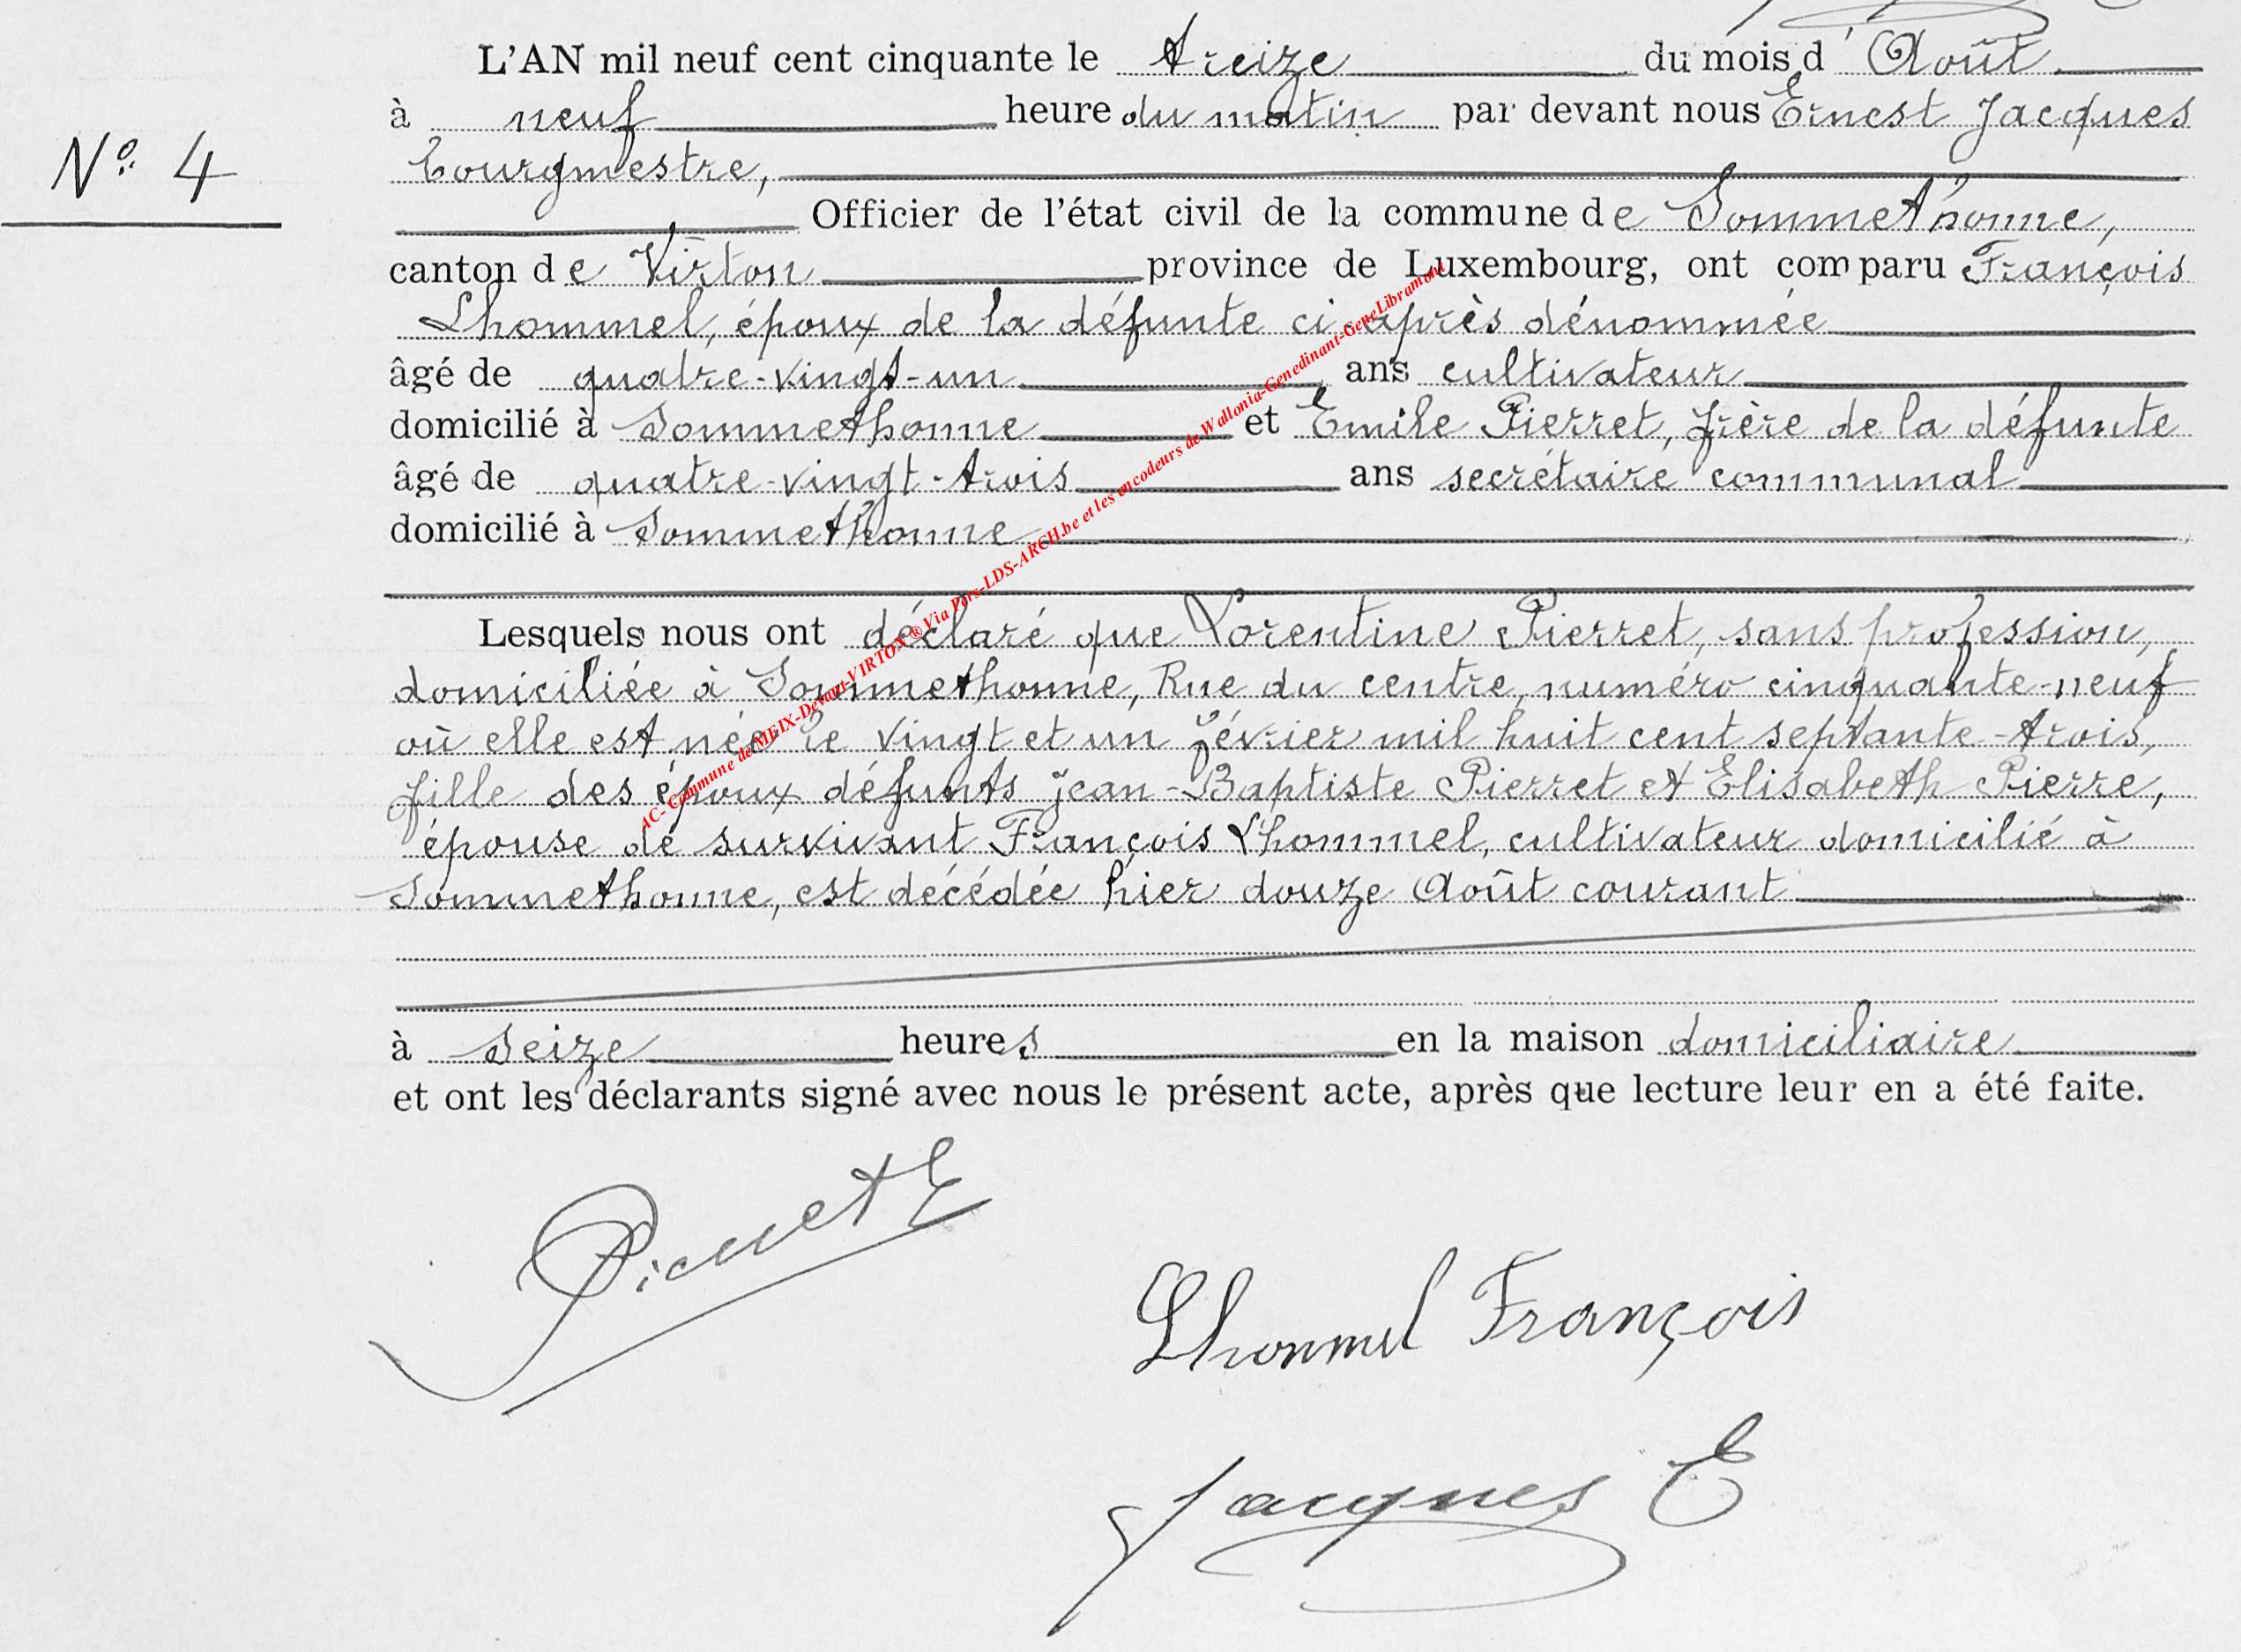 L'AN mil neuf cent cinquante le treize du mois d'Août
à neuf heure du matin par devant nous Ernest Jacques
N° 4
bourgmestre,
Officier de l'état civil de la commune de Sommethonne,
canton de Virton province de Luxembourg, ont comparu François
Lhommel, époux de la défunte ci après dénommée
âgé de quatre-vingt-un ans cultivateur
domicilié à Sommethonne et Emile Pierret, frère de la défunte
âgé de quatre-vingt-trois ans secrétaire communal
domicilié à Sommethonne
Lesquels nous ont déclaré que Lorentine Pierret, sans profession,
domiciliée à Sommethonne, Rue du centre, numéro cinquante-neuf
où elle est née le vingt et un février mil huit cent septante-trois,
fille des époux défunts Jean-Baptiste Pierret et Elisabeth Pierre,
épouse de survivant François Lhommel, cultivateur domicilié à
Sommethonne, est décédée hier douze Août courant
à seize heures en la maison domiciliaire
et ont les déclarants signé avec nous le présent acte, après que lecture leur en a été faite.
Pierret E
Lhommel François
Jacques E
AC- Commune de MEIX-Devant-VIRTON® Via Pers-LDS-ARCH.be et les encodeurs de Wallonia-Genedinant-GeneLibramont